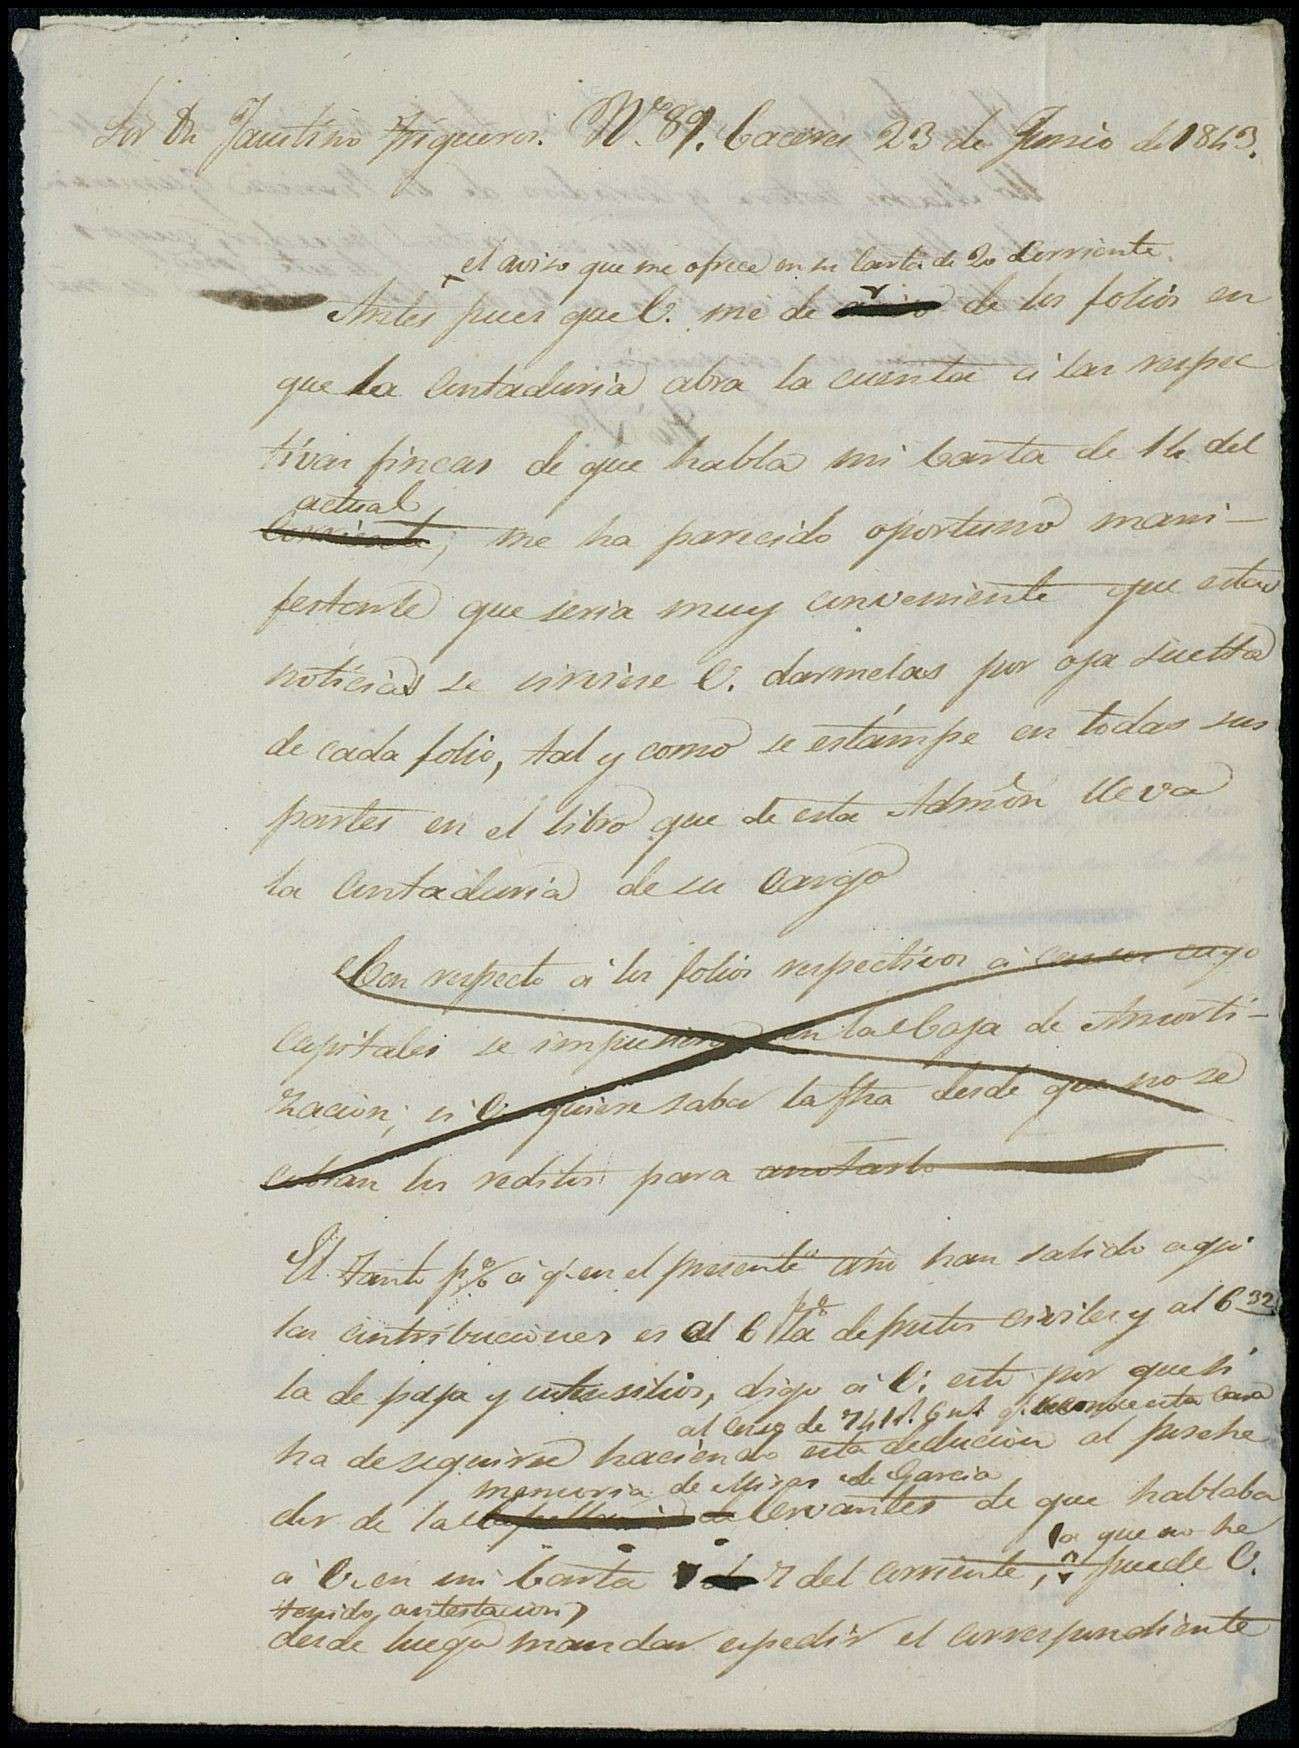 Sor Dn Faustino Trigueros. Nº 89. Caceres 23 de Junio de 1843.
el aviso que me ofrece en su Carta de 20 Corriente
Antes pues que V. me de aviso de los folios en
que la Contaduria abra la cuenta á las respec
tivas fincas de que habla mi Carta de 14 del
actual
Corriente, me ha parecido oportuno mani-
festarle que seria muy conveniente que estas
noticias se sirviese V. darmelas por oja suelta
de cada folio, tal y como se estámpe en todas sus
partes en el libro que de esta Admon lleva
la Contaduria de su cargo
Con respecto á los folios respectivos á Censos cuyo
Capitales se impusieron en la Caja de Amorti-
zacion, si V. quiere saber la fha desde que no se
cobran los reditos para anotarlo
El tanto p% á q. en el presente año han salido aqui
las contribuciones es al 6 p% la de frutos civiles y al 6 32
la de paja y utensilios, digo á V. esto por que si
al Censo de 741 rs. 6 ms. q. esta casa
ha de seguirse haciendo esta deducion al posehe
memoria de Misas de Garcia
dor de la Capellania de Cervantes de que hablaba
á V. en mi Carta del 7 del corriente, puede V.
a que no he
tenido contestacion,
desde luego mandar espedir el correspondiente